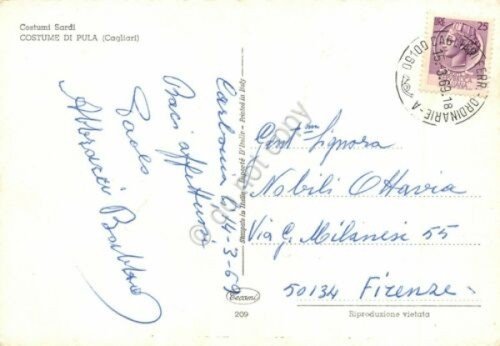 Costumi Sardi
COSTUME DI PULA (Cagliari)
Carbonia 14-3-69
Baci affettuosi
Paolo
Abbracci Babbo
Stampato in Italia - Importé D'Italie - Printed in Italy
209
LIRE 25
09100 CAGLIARI FERR. ORDINARIE-A
15-3-69.18
Gent.ma Signora
Nobili Ottavia
Via G. Milanesi 55
50134 Firenze
Riproduzione vietata
do not copy